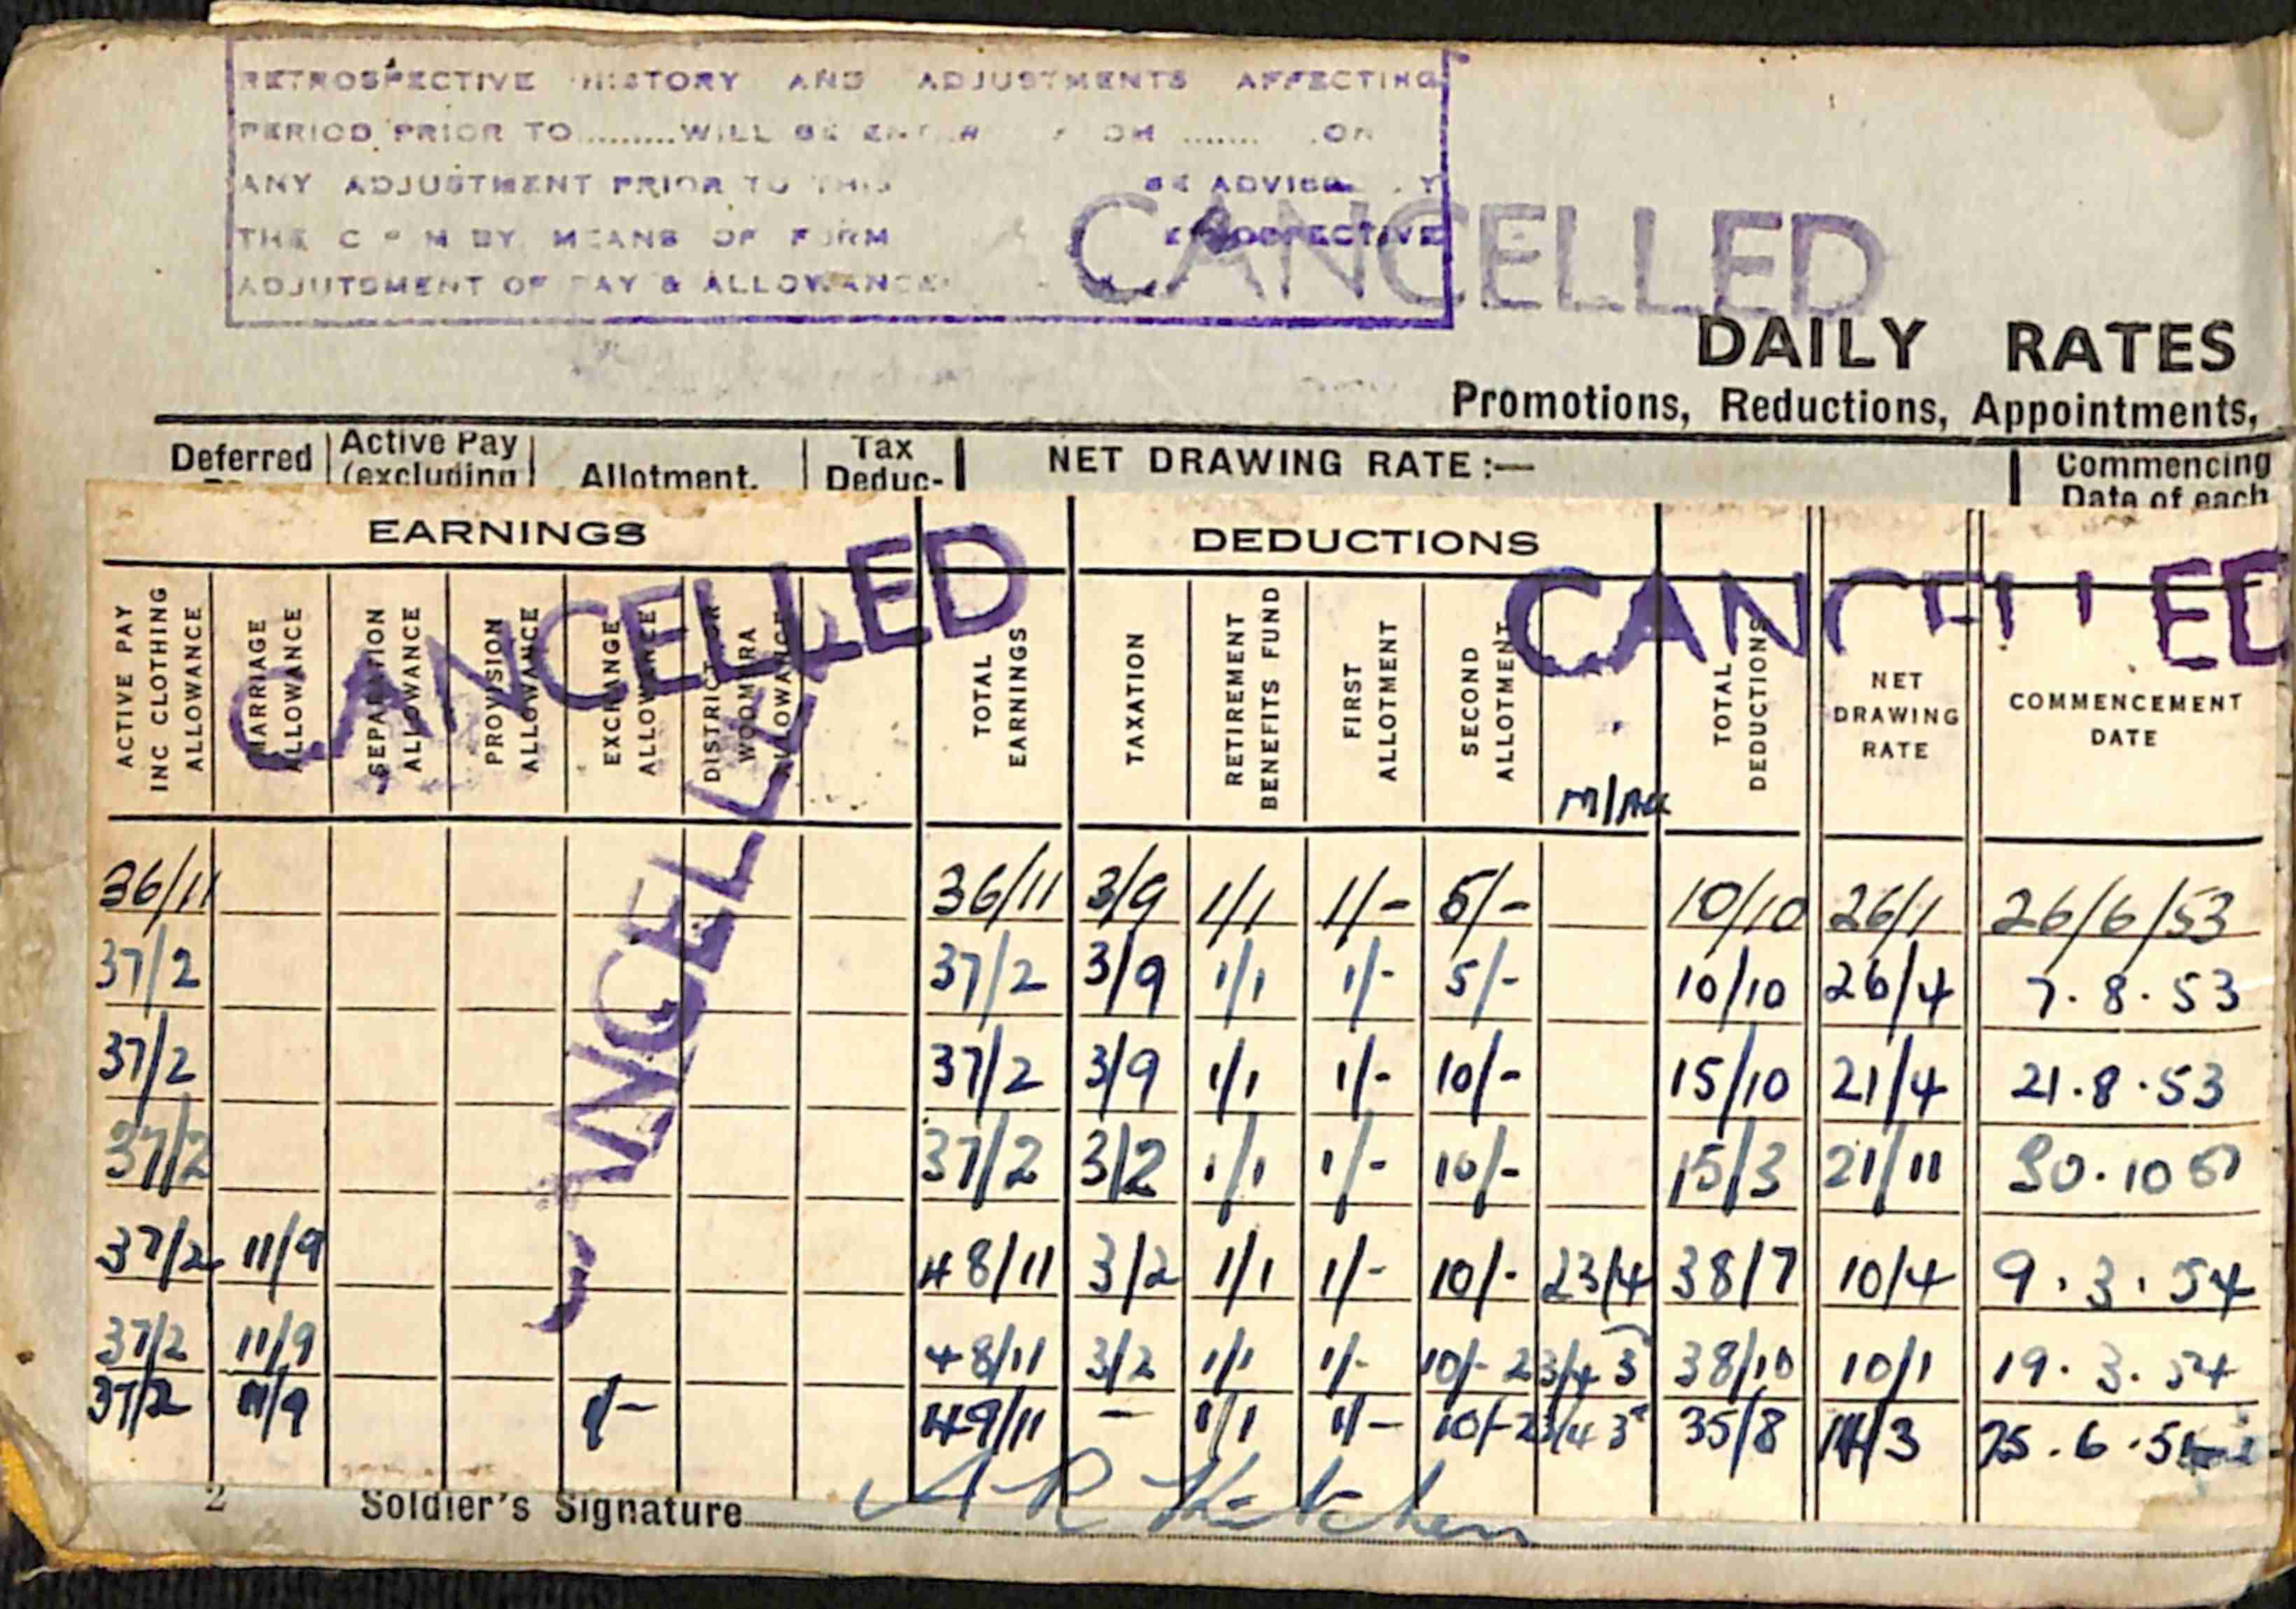 RETROSPECTIVE HISTORY AND ADJUSTMENTS AFFECTING
PERIOD PRIOR TO.........WILL BE ....... ON
ANY ADJUSTMENT PRIOR TO THIS BE ADVISED BY
THE C P M BY MEANS OF FORM RETROSPECTIVE
ADJUTSMENT OF PAY & ALLOWANCE
CANCELLED
DAILY RATES
Promotions, Reductions, Appointments,
Deferred Active Pay (excluding Allotment. Tax Deduc- NET DRAWING RATE:— Commencing Date of each
EARNINGS DEDUCTIONS
CANCELLED
CANCELLED
CANCELLED
ACTIVE PAY INC CLOTHING ALLOWANCE
MARRIAGE ALLOWANCE
SEPARATION ALLOWANCE
PROVISION ALLOWANCE
EXCHANGE ALLOWANCE
DISTRICT OR WOOMERA ALLOWANCE
TOTAL EARNINGS
TAXATION
RETIREMENT BENEFITS FUND
FIRST ALLOTMENT
SECOND ALLOTMENT
TOTAL DEDUCTIONS
NET DRAWING RATE
COMMENCEMENT DATE
36/11 36/11 3/9 1/1 1/- 5/- 10/10 26/1 26/6/53
37/2 37/2 3/9 1/1 1/- 5/- 10/10 26/4 7.8.53
37/2 37/2 3/9 1/1 1/- 10/- 15/10 21/4 21.8.53
37/2 37/2 3/2 1/1 1/- 10/- 15/3 21/11
37/2 11/9 48/11 3/2 1/1 1/- 10/- 23/4 38/7 10/4 9.3.54
37/2 11/9 48/11 3/2 1/1 1/- 10/- 23/4 3 38/10 10/1 19.3.54
37/2 11/9 1/- 49/11 - 1/1 1/- 10/- 23/4 3 35/8 14/3
2 Soldier's Signature A R Ketchen